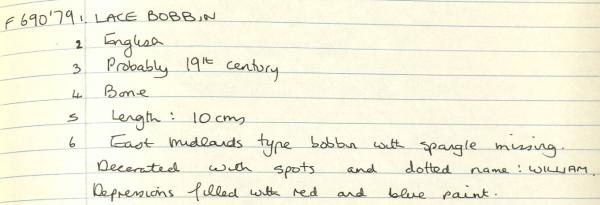 F690'79 1. LACE BOBBIN
2 English
3 Probably 19th century
4 Bone
5 Length : 10cms
6 East midlands type bobbin with spangle missing.
Decorated with spots and dotted name : WILLIAM.
Depressions filled with red and blue paint.